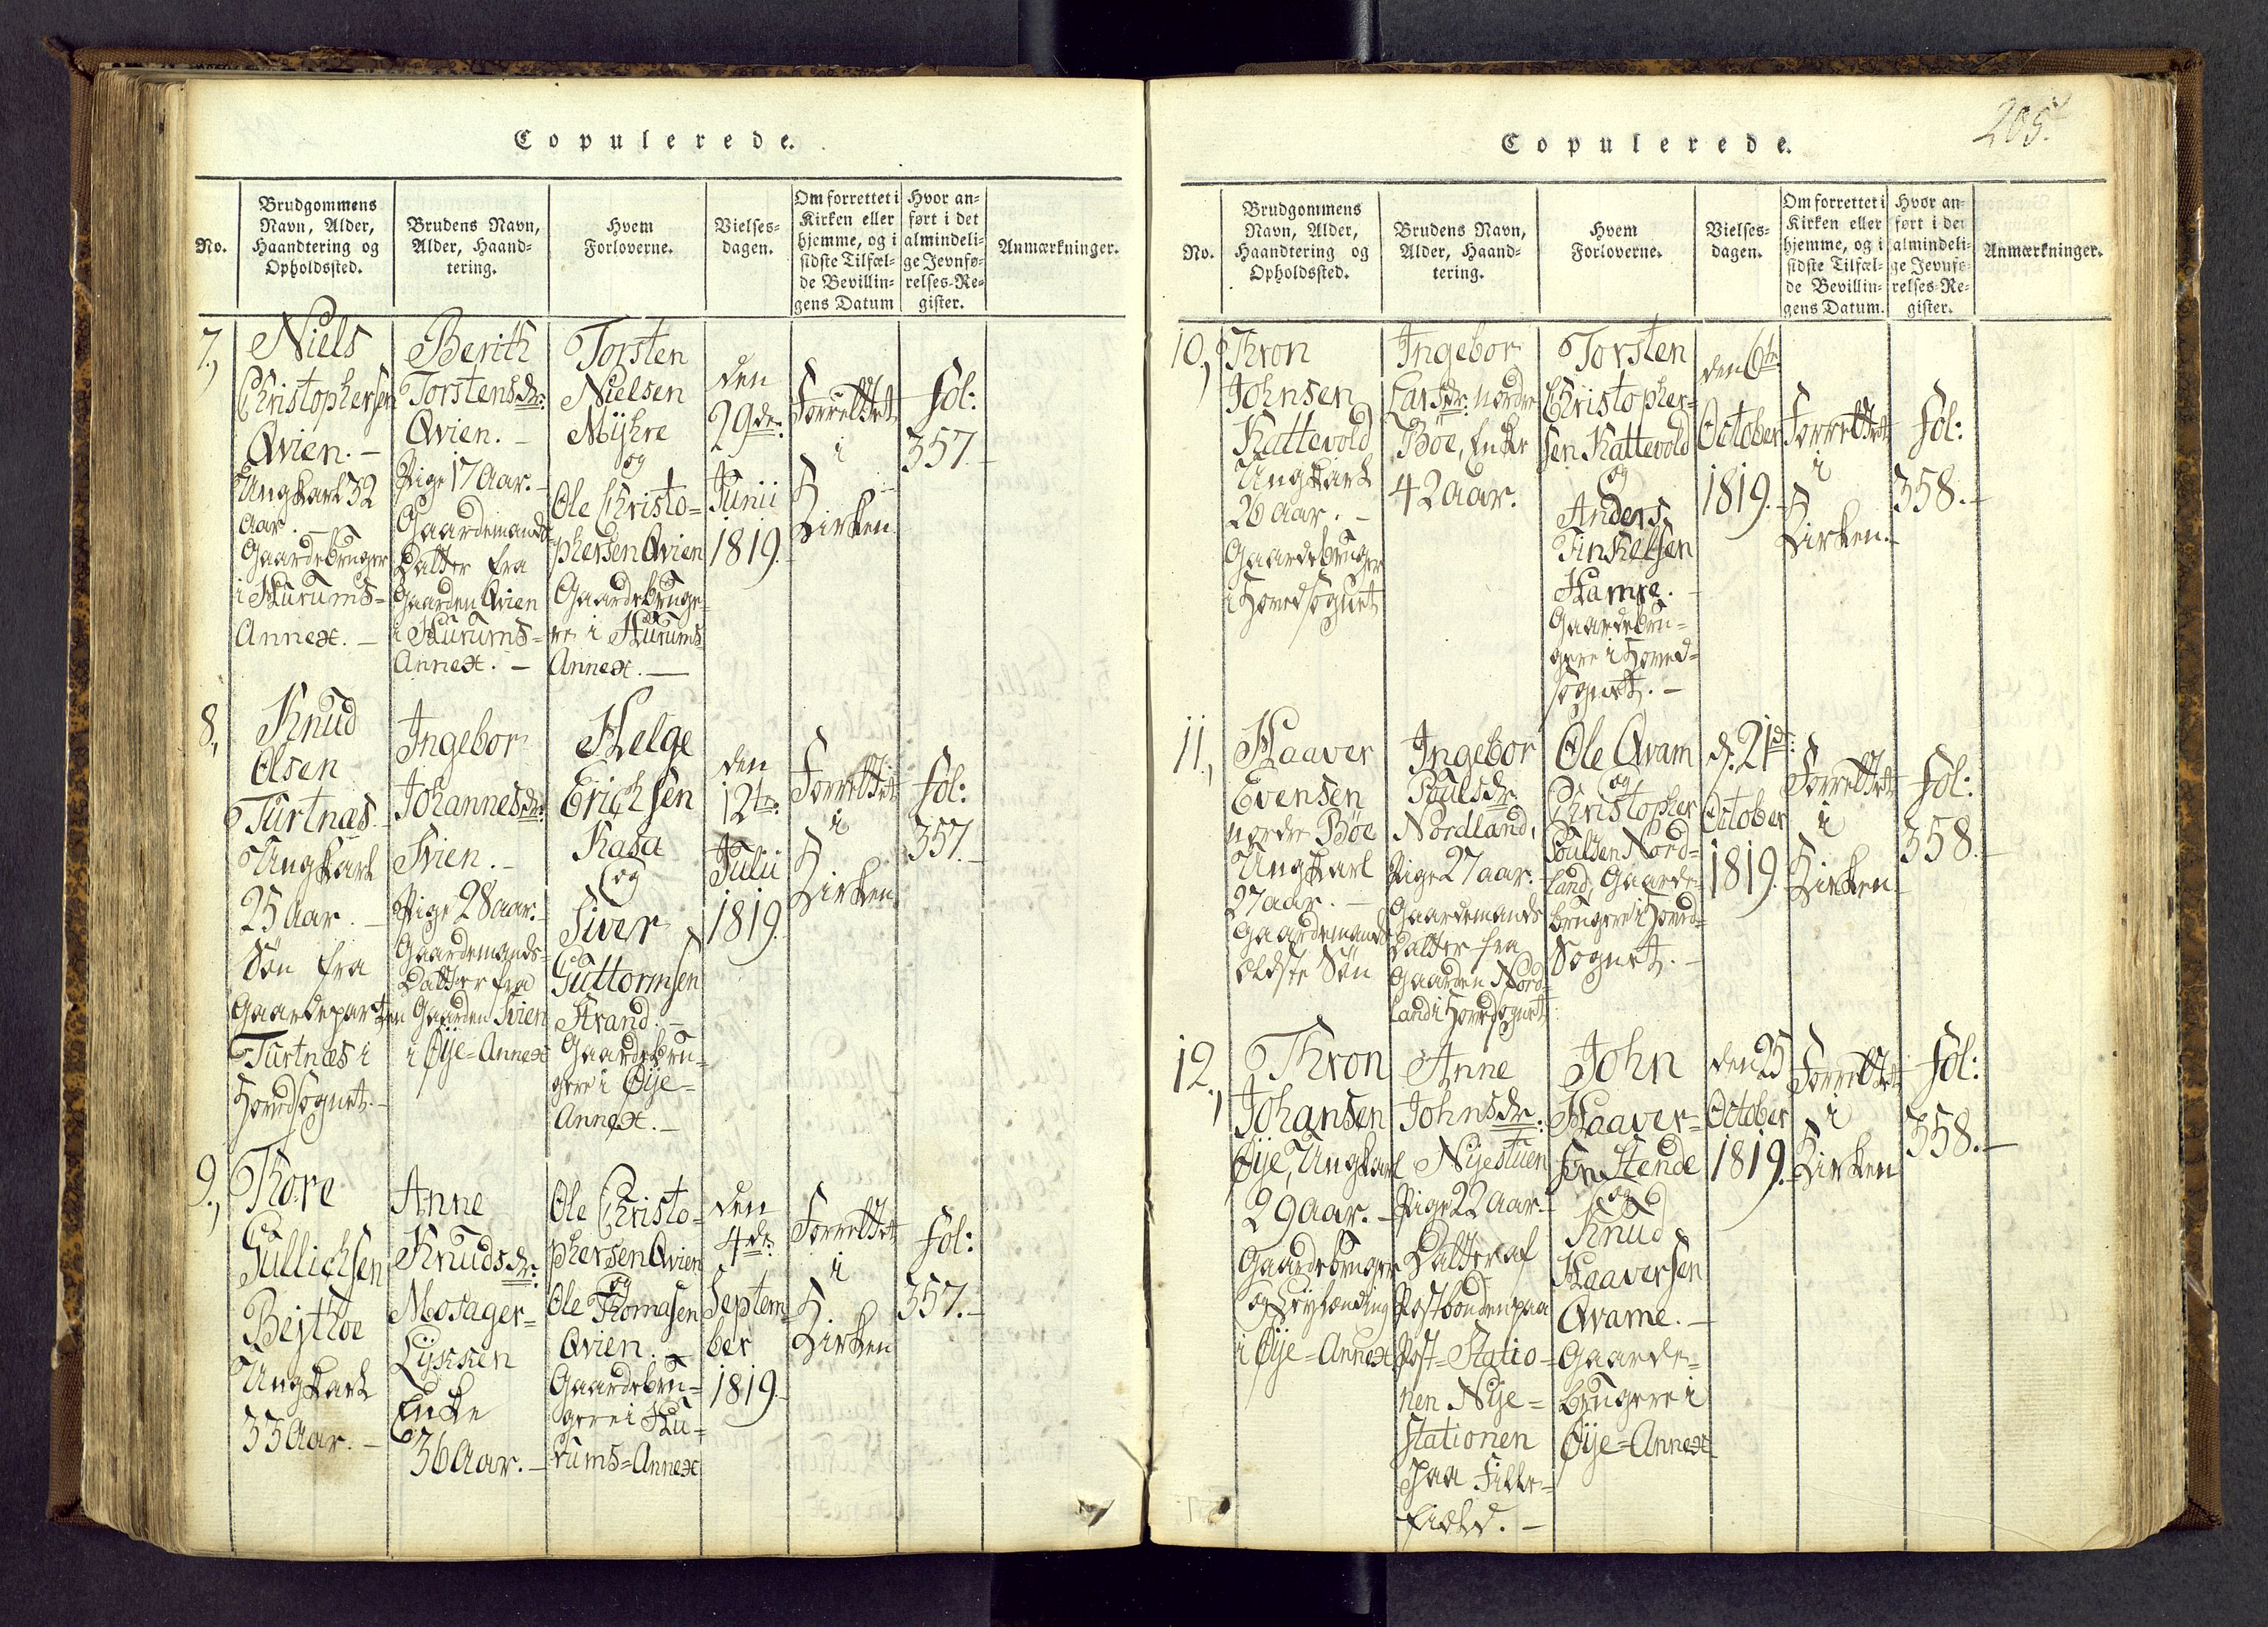 Copulerede.
No.
Brudgommens
Navn, Alder,
Haandtering og
Opholdssted.
Brudens Navn,
Alder, Haand-
tering.
Hvem
Forloverne.
Vielses-
dagen.
Om forrettet i
Kirken eller
hjemme, og i
sidste Tilfæl-
de Bevillin-
gens Datum
Hvor an-
ført i det
almindeli-
ge Jevnfø-
relses-Re-
gister.
Anmærkninger.
7.,
Niels
Christophersen
Qvien. -
Ungkarl 32
Aar. -
Gaardebruger
i Hurums-
Annex. -
Berith
Torstensdr:
Qvien. -
Pige 17 Aar. -
Gaardemands
Datter fra
Gaarden Qvien
i Hurums-
Annex. -
Torsten
Nielsen
Myhre
og
Ole Christo-
phersen Qvien
Gaardebruge-
re i Hurums
Annex. -
den
29de:
Junii
1819.
Forrettet
i
H
Kirken
fol:
357. -
8.,
Knud
Olsen
Turtnæs
Ungkarl
25 Aar. -
Søn fra
Gaardeparten
Turtnæs i
Hovedsognet. -
Ingebor
Johannesdr:
Svien. -
Pige 28 aar. -
Gaardemands-
Datter fra
Gaarden Svien
i Øye-Annex
Helge
Erichsen
Kasa
og
Siver
Guttormsen
Strand. -
Gaardebru-
gere i Øye-
Annex. -
den
12te:
Julii
1819.
Forrettet
i
H
Kirken
fol:
357. -
9.,
Thore
Gullichsen
Bejthoe
Ungkarl
33 Aar. -
Anne
Knudsdr:
Mosager-
Lykken
Enke
36 Aar. -
Ole Christo-
phersen Qvien
og
Ole Thomasen
Qvien. -
Gaardebru-
gere i Hu-
rums-Annex
den
4de:
Septem-
ber
1819. -
Forrettet
i
H
Kirken
fol:
357. -
Copulerede.
205.
No.
Brudgommens
Navn, Alder,
Haandtering og
Opholdssted.
Brudens Navn,
Alder, Haand-
tering.
Hvem
Forloverne.
Vielses-
dagen.
Om forrettet i
Kirken eller
hjemme, og i
sidste Tilfæl-
de Bevillin-
gens Datum.
Hvor an-
ført i det
almindeli-
ge Jevnfø-
relses-Re-
gister.
Anmærkninger.
10.,
Thron
Johnsen
Kattevold
Ungkarl
26 Aar. -
Gaardebruger
i Hovedsognet
Ingebor
Larsdr: nordre
Bøe, Enke
42 Aar.
Torsten
Christopher-
sen Kattevold
og
Anders
Finkelsen
Hamre. -
Gaardebru-
gere i Hoved-
sognet. -
den 6te
October
1819. -
Forrettet
i
H
Kirken. -
fol:
358. -
11.,
Haaver
Evensen
nordre Bøe
Ungkarl
27 aar. -
Gaardemands
ældste Søn
Ingebor
Poulsdr
Nordland,
Pige 27 aar. -
Gaardemands
Datter fra
Gaarden Nord-
land i Hovedsognet
Ole Qvam
og
Christopher
Poulsen Nord-
land, Gaarde-
brugere i Hoved-
Sognet. -
d. 21de:
October
1819.
Forrettet
i
H
Kirken. -
fol:
358. -
12.,
Thron
Johansen
Øye, Ungkarl
29 aar. -
Gaardebruger
i Øye-Annex
Anne
Johnsdr:
Nyestuen
Pige 22 aar. -
Datter af
Postbonden paa
Post-Statio-
nen Nye-
stationen
paa Fille-
field. -
John
Haaver-
sen Stende
og
Knud
Haaversen
Qvame. -
Gaarde-
brugere i
Øye-Annex
den 25
October
1819.
Forrettet
i
H
Kirken
fol:
358. -